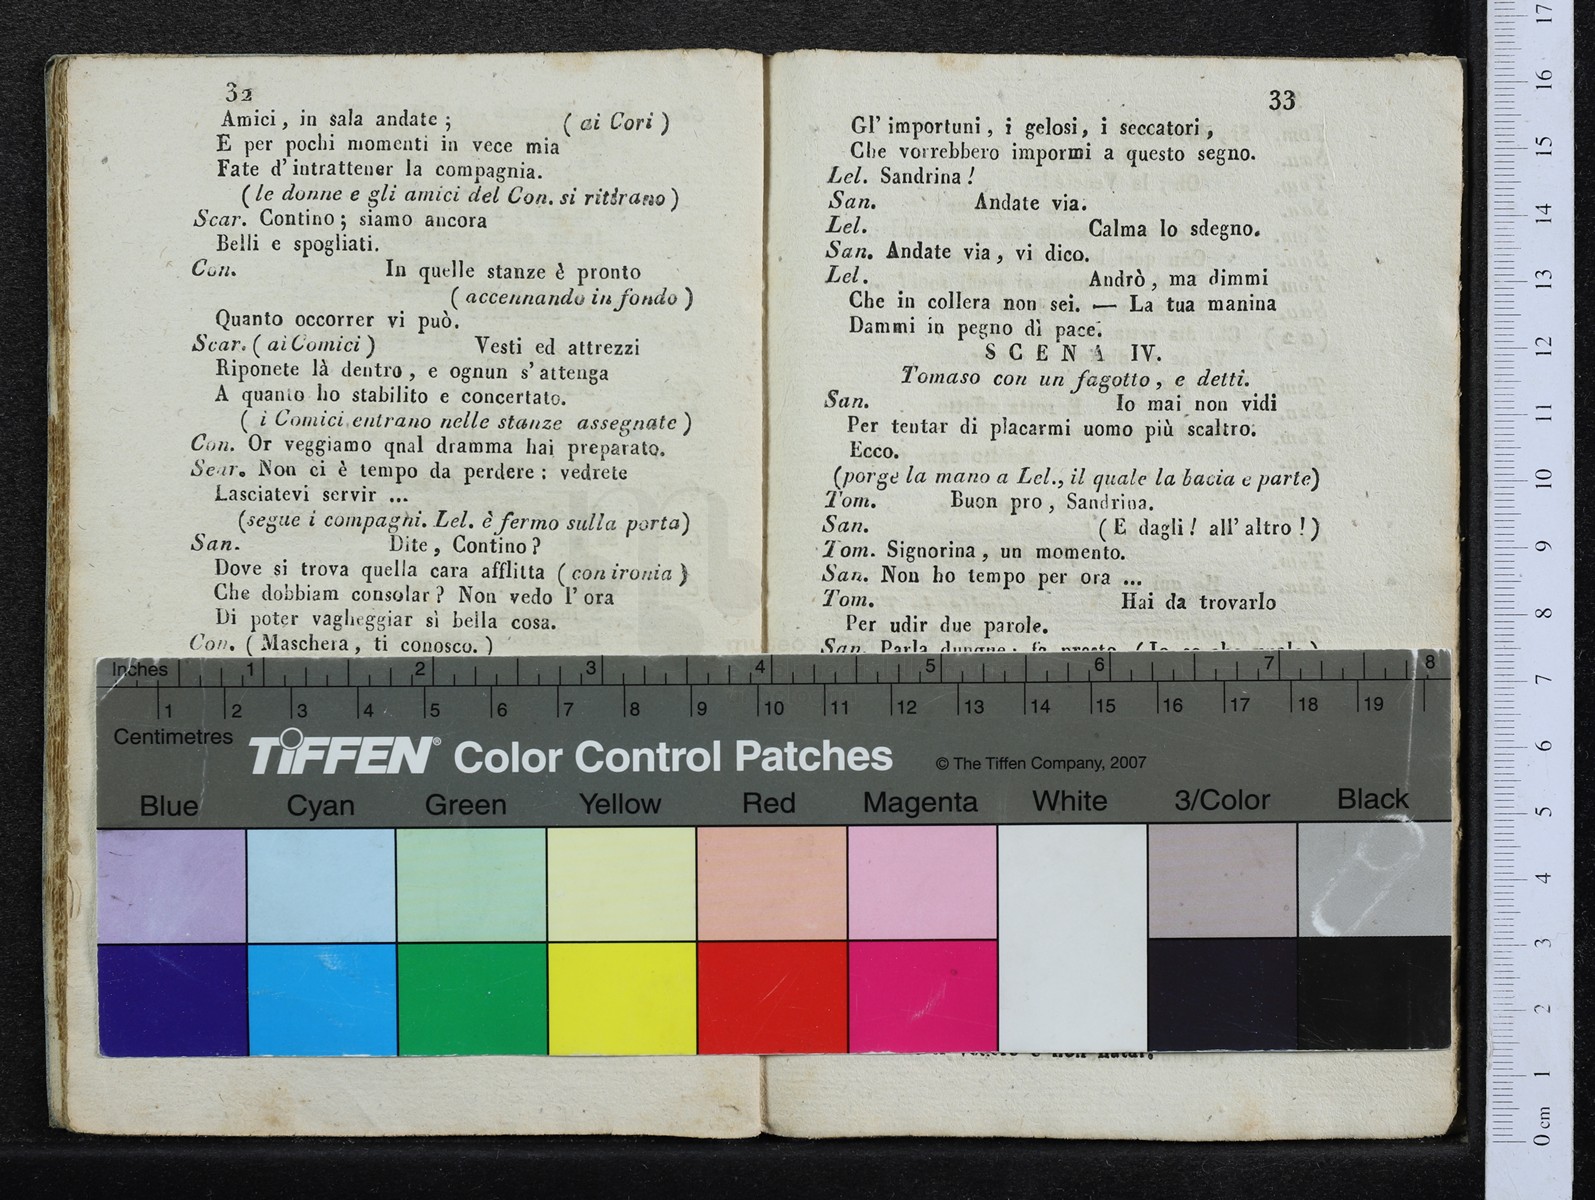 32
Amici, in sala andate; (ai Cori)
E per pochi momenti in vece mia
Fate d'intrattener la compagnia.
(le donne e gli amici del Con. si ritirano)
Scar. Contino; siamo ancora
Belli e spogliati.
Con. In quelle stanze è pronto
(accennando in fondo)
Quanto occorrer vi può.
Scar. (ai Comici) Vesti ed attrezzi
Riponete là dentro, e ognun s'attenga
A quanto ho stabilito e concertato.
(i Comici entrano nelle stanze assegnate)
Con. Or veggiamo qnal dramma hai preparato.
Scar. Non ci è tempo da perdere: vedrete
Lasciatevi servir ...
(segue i compagni. Lel. è fermo sulla porta)
San. Dite, Contino?
Dove si trova quella cara afflitta (con ironia)
Che dobbiam consolar? Non vedo l'ora
Di poter vagheggiar sì bella cosa.
Con. (Maschera, ti conosco.)
33
Gl'importuni, i gelosi, i seccatori,
Che vorrebbero impormi a questo segno.
Lel. Sandrina!
San. Andate via.
Lel. Calma lo sdegno.
San. Andate via, vi dico.
Lel. Andrò, ma dimmi
Che in collera non sei. — La tua manina
Dammi in pegno dì pace.
SCENA IV.
Tomaso con un fagotto, e detti.
San. Io mai non vidi
Per tentar di placarmi uomo più scaltro.
Ecco.
(porge la mano a Lel., il quale la bacia e parte)
Tom. Buon pro, Sandrina.
San. (E dagli! all'altro!)
Tom. Signorina, un momento.
San. Non ho tempo per ora ...
Tom. Hai da trovarlo
Per udir due parole.
San. Parla dunque: fa presto.
e non
Inches 1 2 3 4 5 6 7 8
1 2 3 4 5 6 7 8 9 10 11 12 13 14 15 16 17 18 19
Centimetres
TIFFEN® Color Control Patches © The Tiffen Company, 2007
Blue Cyan Green Yellow Red Magenta White 3/Color Black
17
16
15
14
13
12
11
10
9
8
7
6
5
4
3
2
1
0 cm